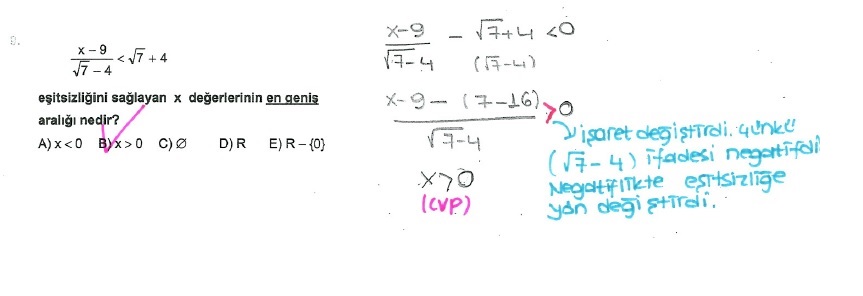 9.
x – 9 / √7 – 4 < √7 + 4
eşitsizliğini sağlayan x değerlerinin en geniş
aralığı nedir?
A) x < 0 B) x > 0 C) Ø D) R E) R – {0}
x-9 / √7-4 - √7+4 <0
(√7-4)
x-9-(7-16) / √7-4 > 0
işaret değiştirdi. çünkü
(√7-4) ifadesi negatifdi
Negatiflikte eşitsizliğe
yön değiştirdi.
x>0
(CVP)